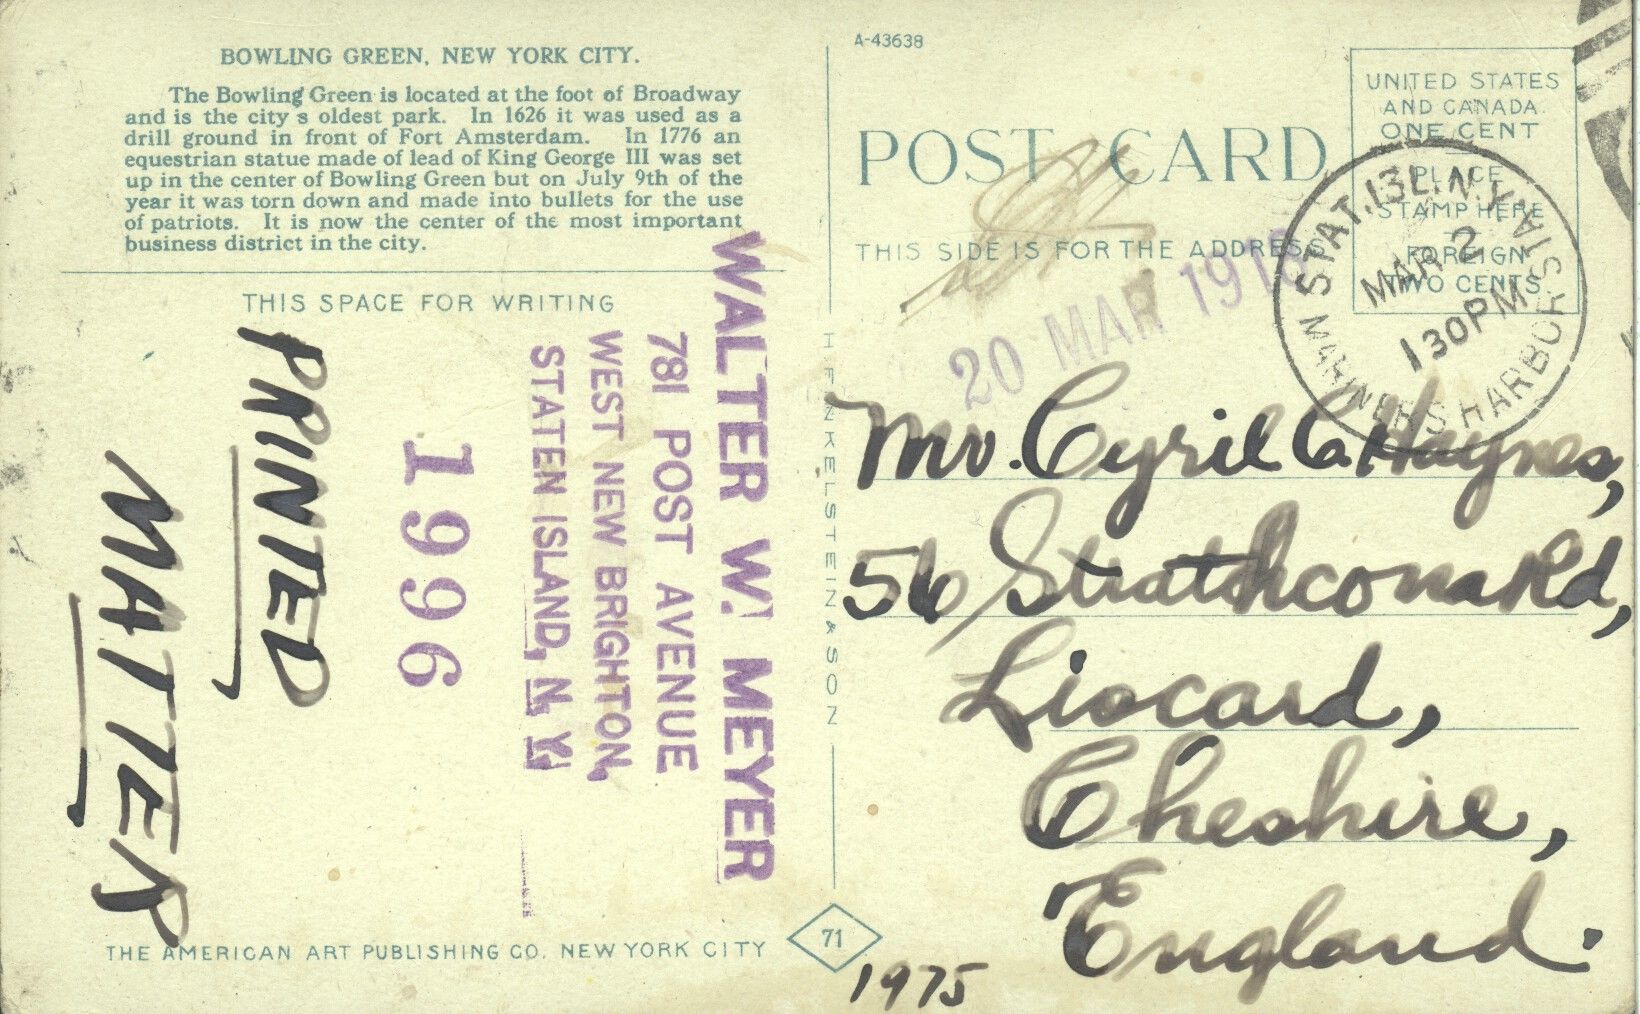 BOWLING GREEN, NEW YORK CITY.
The Bowling Green is located at the foot of Broadway
and is the city s oldest park. In 1626 it was used as a
drill ground in front of Fort Amsterdam. In 1776 an
equestrian statue made of lead of King George III was set
up in the center of Bowling Green but on July 9th of the
year it was torn down and made into bullets for the use
of patriots. It is now the center of the most important
business district in the city.
THIS SPACE FOR WRITING
PRINTED
MATTER
WALTER W. MEYER
781 POST AVENUE
WEST NEW BRIGHTON,
STATEN ISLAND, N. Y.
1996
THE AMERICAN ART PUBLISHING CO. NEW YORK CITY
H. FINKELSTEIN & SON
71
1975
A-43638
POST CARD
THIS SIDE IS FOR THE ADDRESS
UNITED STATES
AND CANADA
ONE CENT
PLACE
STAMP HERE
FOREIGN
TWO CENTS
STAT. 13 L.I. N.Y.
MARINER'S HARBOR STA.
MAR 2
1 30PM
20 MAR
Mr. Cyril C. Haynes,
56 Strathcona Rd,
Liscard,
Cheshire,
England.